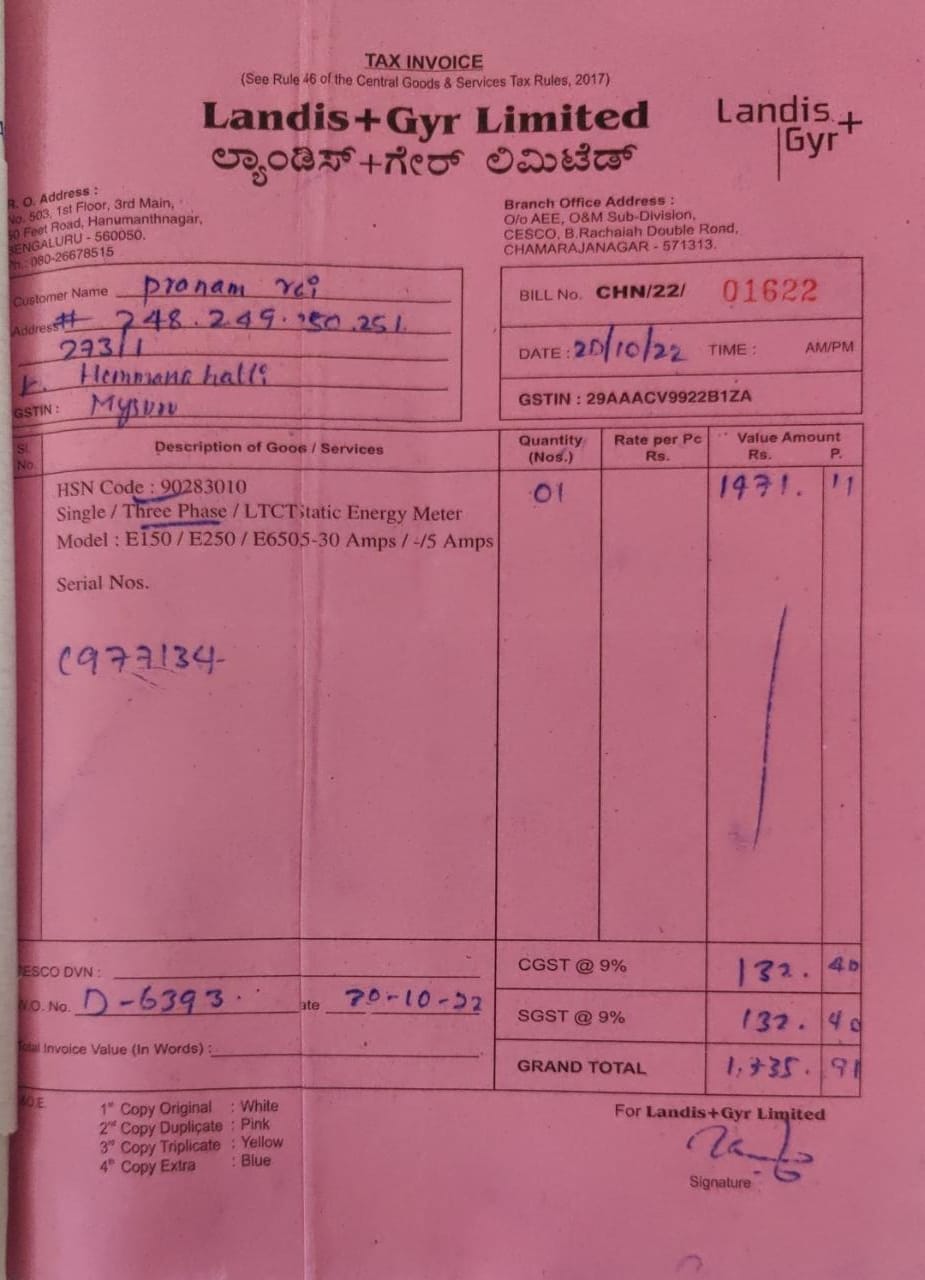 TAX INVOICE
(See Rule 46 of the Central Goods & Services Tax Rules, 2017)
Landis+Gyr Limited
ಲ್ಯಾಂಡಿಸ್+ಗೇರ್ ಲಿಮಿಟೆಡ್
Landis+
Gyr
R. O. Address :
No. 503, 1st Floor, 3rd Main,
Feet Road, Hanumanthnagar,
BENGALURU - 560050.
Ph.: 080-26678515
Branch Office Address :
O/o AEE, O&M Sub-Division,
CESCO, B.Rachaiah Double Rond,
CHAMARAJANAGAR - 571313.
Customer Name Pranam
Address # 248.249.250.251
273/1
Hemmanahalli
GSTIN : Mysuru
BILL No. CHN/22/ 01622
DATE : 20/10/22 TIME : AM/PM
GSTIN : 29AAACV9922B1ZA
Sl. No. Description of Goos / Services Quantity (Nos.) Rate per Pc Rs. Value Amount Rs. P.
HSN Code : 90283010 01 1471. 11
Single / Three Phase / LTCT Static Energy Meter
Model : E150 / E250 / E6505-30 Amps / -/5 Amps
Serial Nos.
C977134
CESCO DVN :
CGST @ 9% 132. 40
W.O. No. D-6393. Date 20-10-22
SGST @ 9% 132. 40
Total Invoice Value (In Words) :
GRAND TOTAL 1,735. 91
1st Copy Original : White
2nd Copy Duplicate : Pink
3rd Copy Triplicate : Yellow
4th Copy Extra : Blue
For Landis+Gyr Limited
Signature